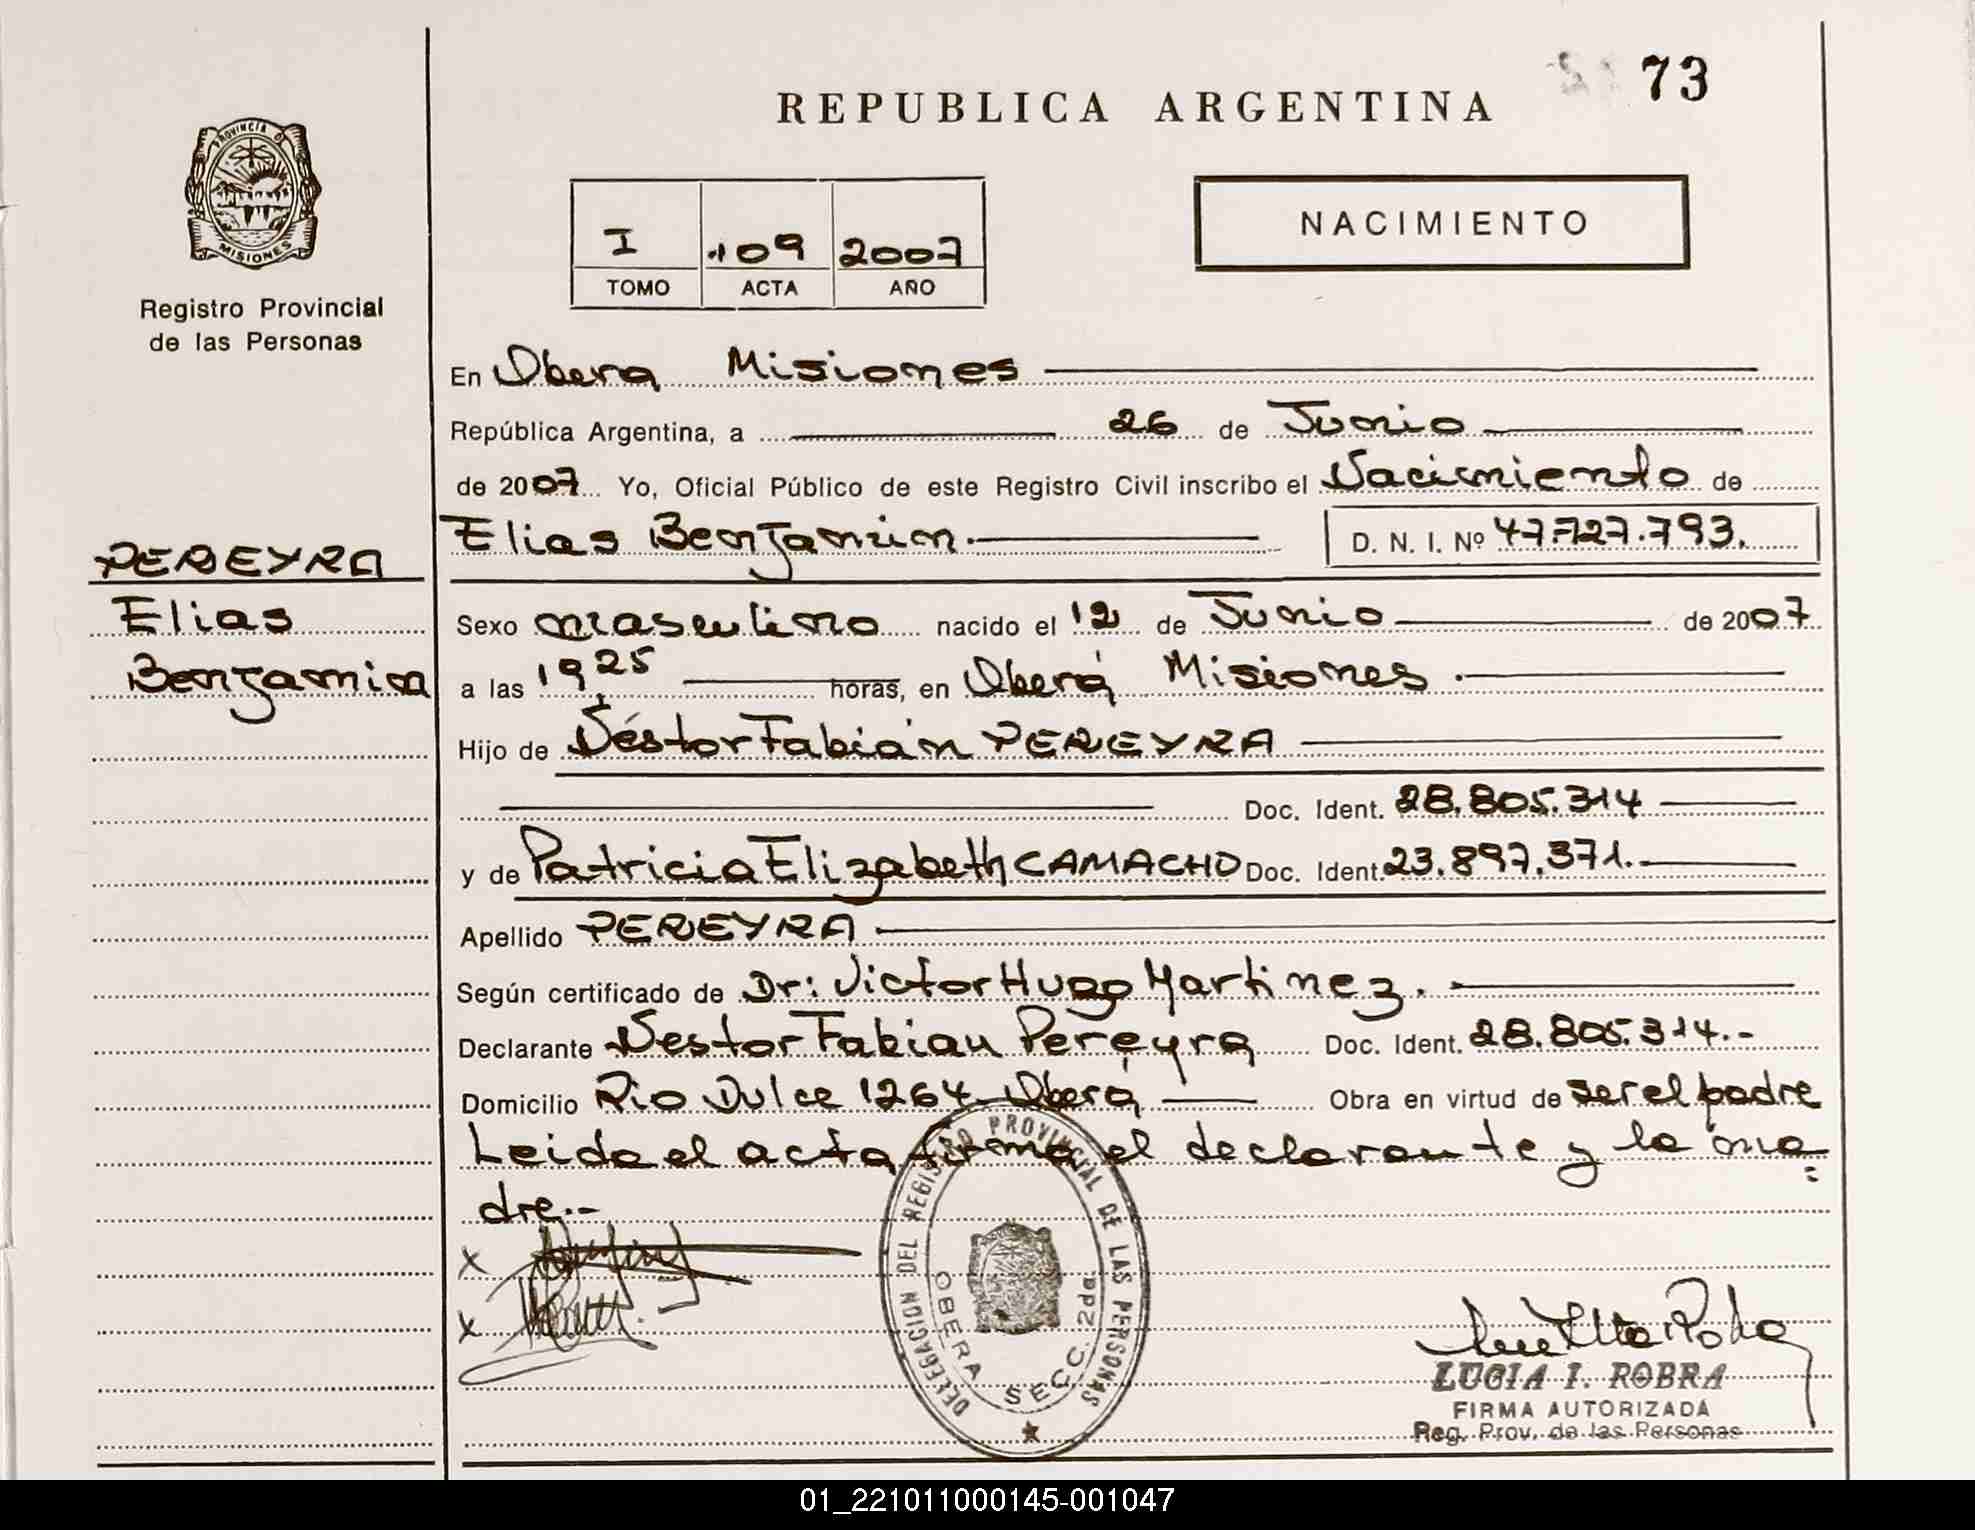 73
REPUBLICA ARGENTINA
PROVINCIA DE
MISIONES
Registro Provincial
de las Personas
I 109 2007
TOMO ACTA AÑO
NACIMIENTO
En Obera Misiones
República Argentina, a 26 de Junio
de 2007 Yo, Oficial Público de este Registro Civil inscribo el Nacimiento de
Elias Benjamin. D. N. I. Nº 47.727.793.
PEREYRA
Elias
Benjamin
Sexo masculino nacido el 12 de Junio de 2007
a las 19,25 horas, en Oberá Misiones.
Hijo de Néstor Fabián PEREYRA
Doc. Ident. 28.805.314
y de Patricia Elizabeth CAMACHO Doc. Ident. 23.897.371.
Apellido PEREYRA
Según certificado de Dr: Victor Hugo Martinez.
Declarante Nestor Fabian Pereyra Doc. Ident. 28.805.314.-
Domicilio Rio Dulce 1264 Oberá Obra en virtud de ser el padre
Leida el acta firma el declarante y la ma
dre.-
x
x
DELEGACION DEL REGISTRO PROVINCIAL DE LAS PERSONAS
OBERA SECC. 2da
LUCIA I. ROBRA
FIRMA AUTORIZADA
Reg. Prov. de las Personas
01_221011000145-001047